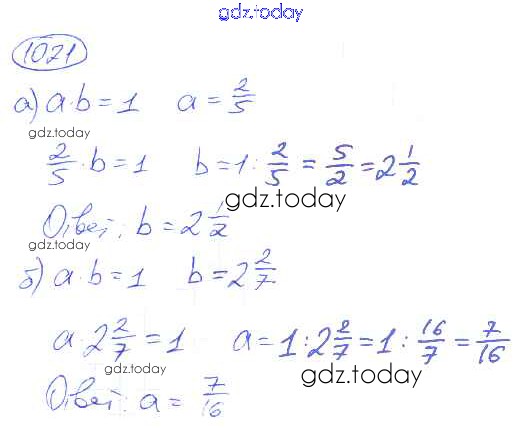 gdz.today
1071
а) a·b = 1 a = 2/5
gdz.today
2/5 · b = 1 b = 1 : 2/5 = 5/2 = 2 1/2
gdz.today
Ответ: b = 2 1/2
gdz.today
б) a·b = 1 b = 2 2/7
gdz.today
a · 2 2/7 = 1 a = 1 : 2 2/7 = 1 : 16/7 = 7/16
gdz.today
gdz.today
Ответ: a = 7/16